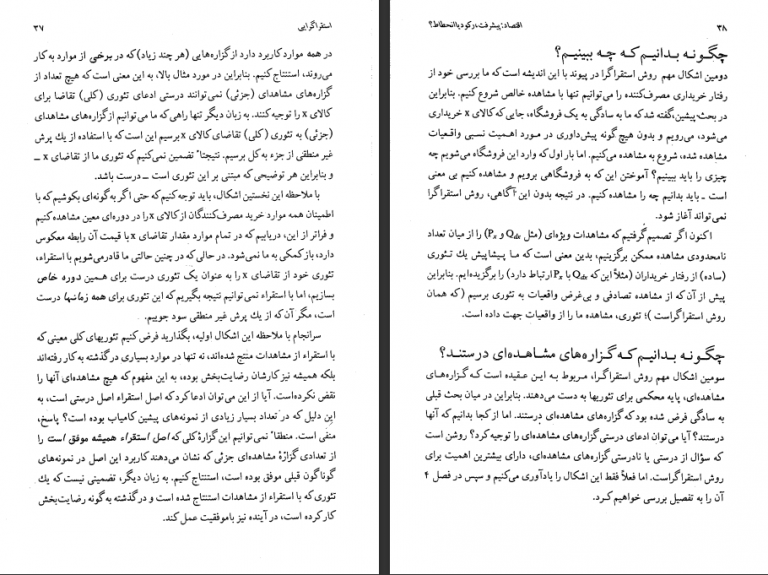 استقراگرایی ۳۷
در همه موارد کاربرد دارد از گزاره‌هایی (هر چند زیاد) که در برخی از موارد به کار
می‌روند، استنتاج کنیم. بنابراین در مورد مثال بالا، به این معنی است که هیچ تعداد از
گزاره‌های مشاهده‌ای (جزئی) نمی‌توانند درستی ادعای تئوری (کلی) تقاضا برای
کالای x را توجیه کنند. به زبان دیگر تنها راهی که ما می‌توانیم از گزاره‌های مشاهده‌ای
(جزئی) به تئوری (کلی) تقاضای کالای x برسیم این است که با استفاده از یك پرش
غیر منطقی از جزء به کل برسیم. نتیجتاً تضمین نمی‌کنیم که تئوری ما از تقاضای x ــ
و بنابراین هر توضیحی که مبتنی بر این تئوری است ــ درست باشد.
با ملاحظه این نخستین اشکال، باید توجه کنیم که حتی اگر به گونه‌ای بکوشیم که با
اطمینان همه موارد خرید مصرف‌کنندگان از کالای x را در دوره‌ای معین مشاهده کنیم
و فراتر از این، دریابیم که در تمام موارد مقدار تقاضای x با قیمت آن رابطه معکوس
دارد، باز کمکی به ما نمی‌شود. در حالی که در چنین حالتی ما قادر می‌شویم با استقراء،
تئوری خود از تقاضای x را به عنوان یک تئوری درست برای همین دوره خاص
بسازیم، اما با استقراء نمی‌توانیم نتیجه بگیریم که این تئوری برای همه زمانها درست
است، مگر آن که از یك پرش غیر منطقی سود جوییم.
سرانجام با ملاحظه این اشکال اولیه، بگذارید فرض کنیم تئوریهای کلی معینی که
با استقراء از مشاهدات منتج شده‌اند، نه تنها در موارد بسیاری درگذشته به کار رفته‌اند
بلکه همیشه نیز کارشان رضایت‌بخش بوده، به این مفهوم که هیچ مشاهده‌ای آنها را
نقض نکرده است. آیا از این می‌توان ادعا کرد که اصل استقراء اصل درستی است، به
این دلیل که در تعداد بسیار زیادی از نمونه‌های پیشین کامیاب بوده است؟ پاسخ،
منفی است. منطقاً نمی‌توانیم این گزارهٔ کلی که اصل استقراء همیشه موفق است را
از تعدادی گزارهٔ مشاهده‌ای جزئی که نشان می‌دهند کاربرد این اصل در نمونه‌های
گوناگون قبلی موفق بوده است، استنتاج کنیم. به زبان دیگر، تضمینی نیست که یك
تئوری که با استقراء از مشاهدات استنتاج شده است و درگذشته به گونه رضایت‌بخش
کار کرده است، در آینده نیز با موفقیت عمل کند.
۳۸ اقتصاد: پیشرفت، رکود یا انحطاط؟
چگونه بدانیم که چه ببینیم؟
دومین اشکال مهم روش استقراگرا در پیوند با این اندیشه است که ما بررسی خود از
رفتار خریداری مصرف‌کننده را می‌توانیم تنها با مشاهده خالص شروع کنیم. بنابراین
در بحث پیشین، گفته شد که ما به سادگی به یک فروشگاه، جایی که کالای x خریداری
می‌شود، می‌رویم و بدون هیچ گونه پیش‌داوری در مورد اهمیت نسبی واقعیات
مشاهده شده، شروع به مشاهده می‌کنیم. اما بار اول که وارد این فروشگاه می‌شویم چه
چیزی را باید ببینیم؟ آموختن این که به فروشگاهی برویم و مشاهده کنیم بی معنی
است ــ باید بدانیم چه را مشاهده کنیم. در نتیجه بدون این آگاهی، روش استقراگرا
نمی‌تواند آغاز شود.
اکنون اگر تصمیم گرفتیم که مشاهدات ویژه‌ای (مثل Qdx و Px) را از میان تعداد
نامحدودی مشاهده ممکن برگزینیم، بدین معنی است که ما پیشاپیش یك تئوری
(ساده) از رفتار خریداران (مثلاً این که Qdx با Px ارتباط دارد) را برگزیده‌ایم. بنابراین
پیش از آن که از مشاهده تصادفی و بی‌غرض واقعیات به تئوری برسیم (که همان
روش استقراگراست)؛ تئوری، مشاهده ما را از واقعیات جهت داده است.
چگونه بدانیم که گزاره‌های مشاهده‌ای درستند؟
سومین اشکال مهم روش استقراگرا، مربوط به این عقیده است که گزاره‌های
مشاهده‌ای، پایه محکمی برای تئوریها به دست می‌دهند. بنابراین در میان بحث قبلی
به سادگی فرض شده بود که گزاره‌های مشاهده‌ای درستند. اما از کجا بدانیم که آنها
درستند؟ آیا می‌توان ادعای درستی گزاره‌های مشاهده‌ای را توجیه کرد؟ روشن است
که سؤال از درستی یا نادرستی گزاره‌های مشاهده‌ای، دارای بیشترین اهمیت برای
روش استقراگراست. اما فعلاً فقط این اشکال را یادآوری می‌کنیم و سپس در فصل ۴
آن را به تفصیل بررسی خواهیم کرد.